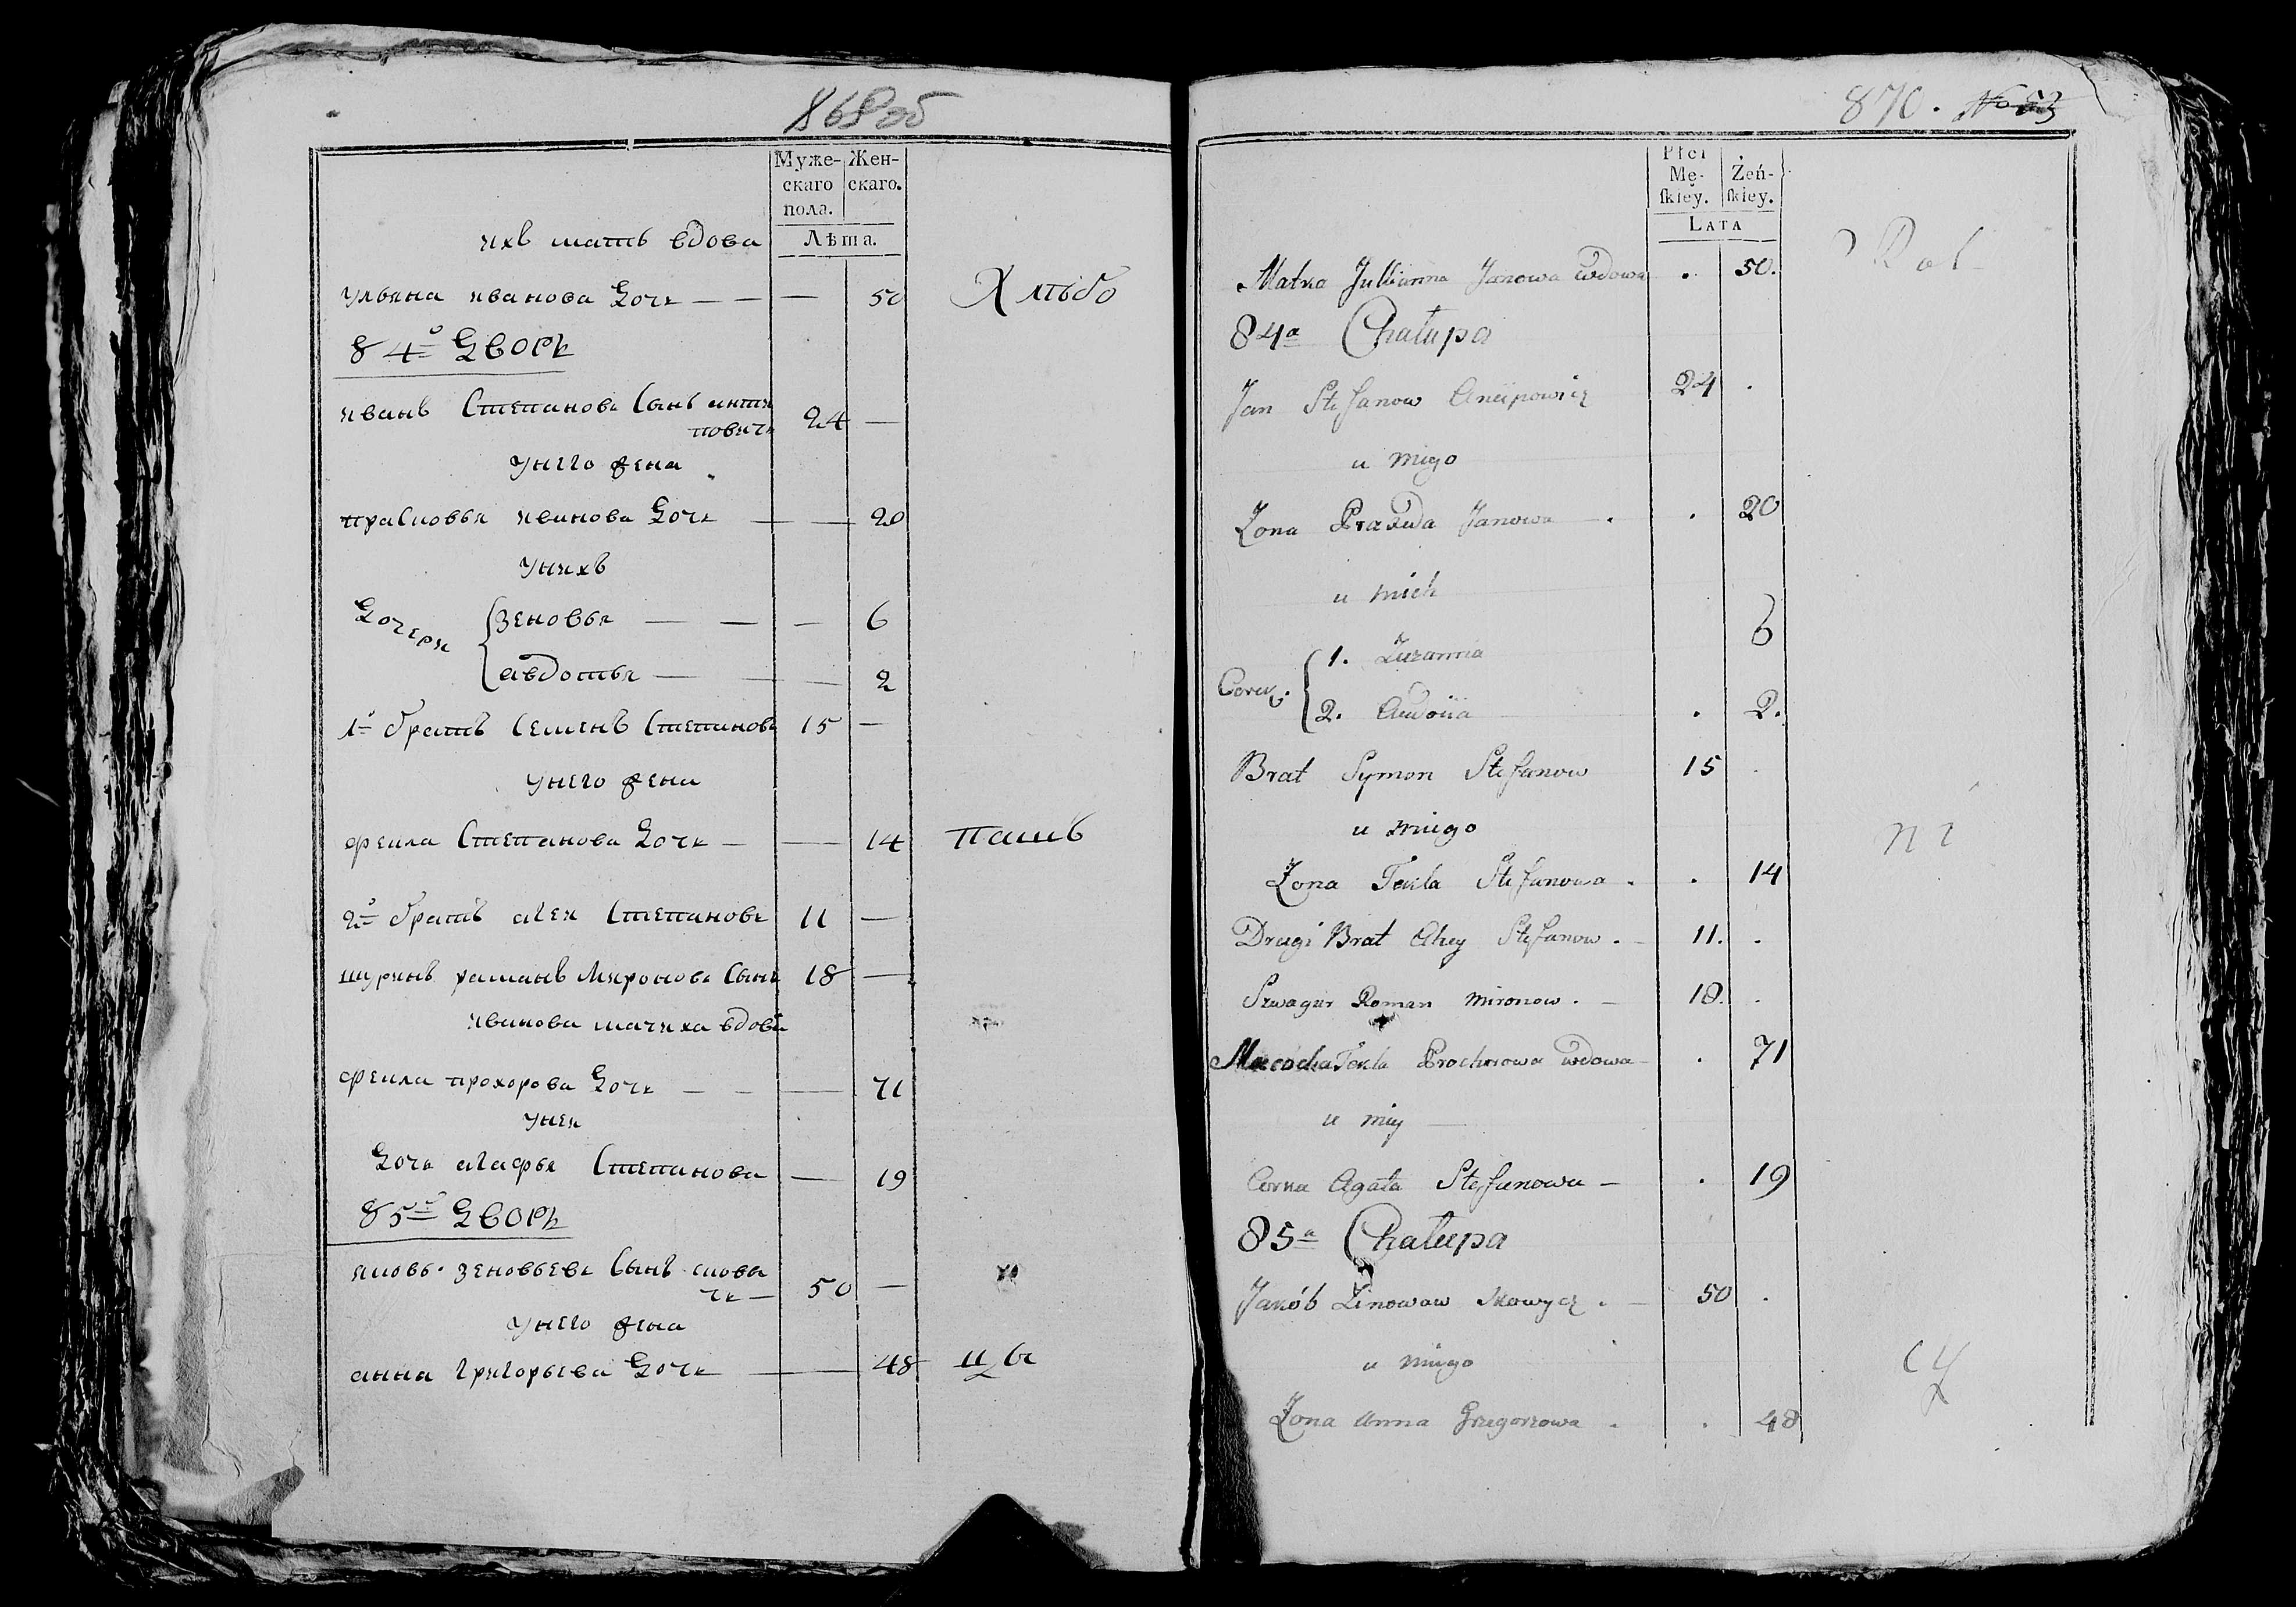 868об
Муже-
скаго
пола.
Жен-
скаго.
Лѣта.
ихъ мать вдова
ульяна иванова дочь — — — 50
Хлѣбо
84й дворъ
иванъ Степановъ Сынъ анти
повичь 24 —
унего жена
прасковья иванова дочь — — 20
унихъ
дочери
зеновья — — — 6
авдотья — — — 2
1й братъ Семенъ Степановъ 15 —
унего жена
фекла Степанова дочь — — 14
пашъ
2й братъ агей Степановъ 11 —
шуринъ раманъ Мироновъ Сынъ 18 —
иванова мачиха вдова
фекла прохорова дочь — — — 71
унея
дочь агафья Степанова — 19
85й дворъ
яковъ зеновьевъ Сынъ скова
чь — 50 —
унего жена
анна григорьева дочь — 48
цы
870. No 53
Płci
Mę-
ſkiey.
Żeń-
ſkiey.
LATA
Rol
Matka Jullianna Janowa wdowa . 50.
84a Chałupa
Jan Stefanow Ancipowicz 24 .
u niego
Zona Praxeda Janowa — . . 20
u nich
Corki.
1. Zuzanna 6
2. Audocia . 2.
Brat Symon Stefanow 15 .
u niego
ni
Zona Tekla Stefanowa . . 14
Drugi Brat Ahey Stefanow . 11. .
Szwagier Roman Mironow . — 18. .
Macocha Tekla Prochorowa wdowa — . 71
u niey
Corka Agata Stefanowa — . 19
85a Chałupa
Jakób Zinowow Skowycz . — 50 .
u niego
cy
Zona Anna Grzegorzowa . . 48